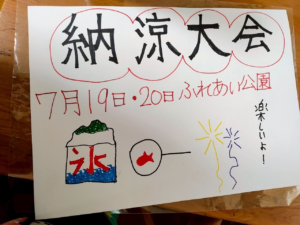 納涼大会
7月19日・20日ふれあい公園
楽しいよ!
氷